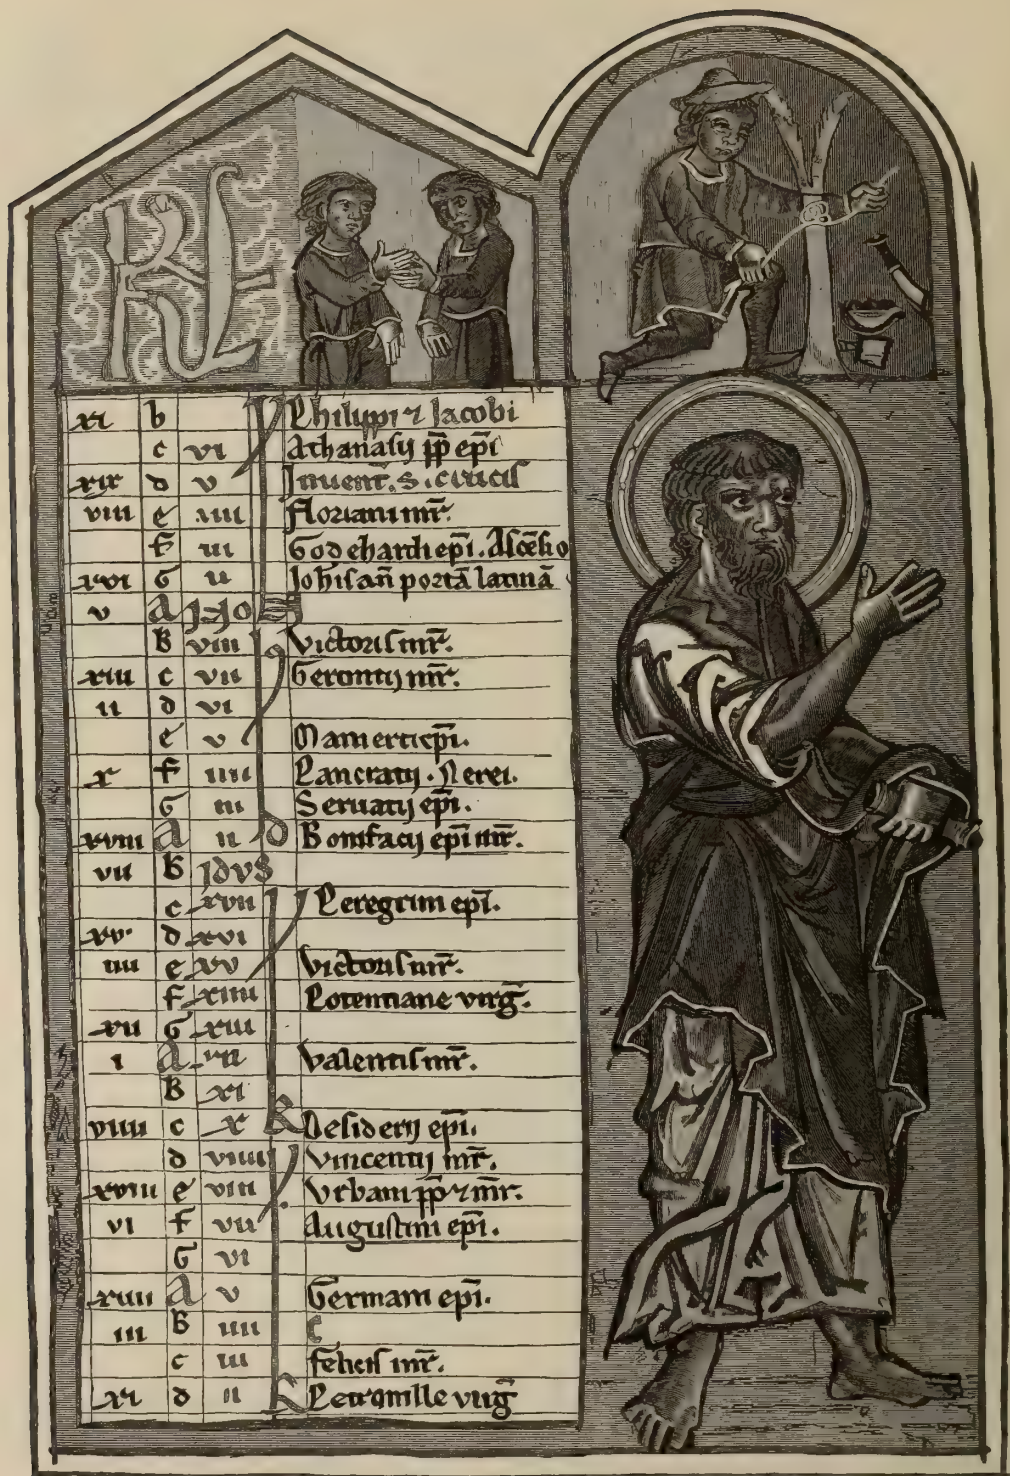 KL
xi b Philippi ⁊ Jacobi
c vi Athanasij pp̄ ep̄i
xix d v Inuent̄. S. crucis
viii e iiii Floriani mr̄.
F iii Godehardi ep̄i. Ascēsio
xvi G ii Joh̄is an̄ portā latinā
v A
B viii Victoris mr̄.
xiii c vii Gerontij mr̄.
ii d vi
e v Mamerti ep̄i.
x F iiii Pancratij. Nerei.
G iii Seruatij ep̄i.
xviii A ii Bonifacij ep̄i mr̄.
vii B idvs
c xvii Peregrini ep̄i.
xv. d xvi
iiii e xv Victoris mr̄.
F xiiii Potentiane virḡ.
xii G xiii
i A xii Valentis mr̄.
B xi
viiii c x Desiderij ep̄i.
d viiii Vincentij mr̄.
xviii e viii Vrbani pp̄ ⁊ mr̄.
vi F vii Augustini ep̄i.
G vi
xiiii A v Germani ep̄i.
iii B iiii
c iii felicis mr̄.
xi d ii Petronille virḡ